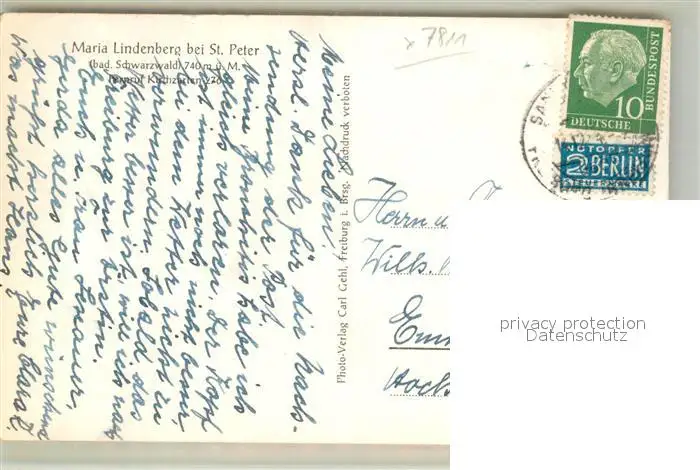 Maria Lindenberg bei St. Peter
(bad. Schwarzwald) 740 m ü. M.
Fernruf Kirchzarten 276
x 7811
10
DEUTSCHE
BUNDESPOST
NOTOPFER
2 BERLIN
STEUERMARKE
Photo-Verlag Carl Gehl, Freiburg i. Brsg. Nachdruck verboten
Meine Lieben!
Herzl. Dank für die Nach-
sendung der Post.
Meine Bronchitis habe ich
verloren. Der Kopf
ist immer noch nicht besser,
bei dem Wetter nicht zu
verwundern. Sobald das
Wetter besser ist, will ich nach
Freiburg zur Ärztin.
Euch u. Frau
Gerda alles Gute wünschend
grüßt herzlich Eure Clara L.
Was macht Hans?
Herrn u.
Wilh.
Em
privacy protection
DatenSchutz